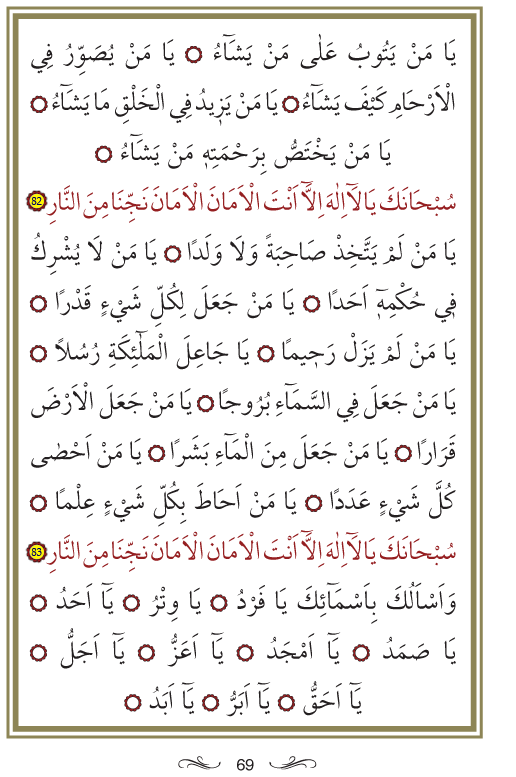 يَا مَنْ يَتُوبُ عَلٰى مَنْ يَشَٓاءُ ۞ يَا مَنْ يُصَوِّرُ فِي
الْاَرْحَامِ كَيْفَ يَشَٓاءُ ۞ يَا مَنْ يَزٖيدُ فِي الْخَلْقِ مَا يَشَٓاءُ ۞
يَا مَنْ يَخْتَصُّ بِرَحْمَتِهٖ مَنْ يَشَٓاءُ ۞
سُبْحَانَكَ يَا لَٓا اِلٰهَ اِلَّٓا اَنْتَ الْاَمَانَ الْاَمَانَ نَجِّنَا مِنَ النَّارِ 82
يَا مَنْ لَمْ يَتَّخِذْ صَاحِبَةً وَلَا وَلَدًا ۞ يَا مَنْ لَا يُشْرِكُ
فٖي حُكْمِهٖٓ اَحَدًا ۞ يَا مَنْ جَعَلَ لِكُلِّ شَيْءٍ قَدْرًا ۞
يَا مَنْ لَمْ يَزَلْ رَحٖيمًا ۞ يَا جَاعِلَ الْمَلٰٓئِكَةِ رُسُلاً ۞
يَا مَنْ جَعَلَ فِي السَّمَٓاءِ بُرُوجًا ۞ يَا مَنْ جَعَلَ الْاَرْضَ
قَرَارًا ۞ يَا مَنْ جَعَلَ مِنَ الْمَٓاءِ بَشَرًا ۞ يَا مَنْ اَحْصٰى
كُلَّ شَيْءٍ عَدَدًا ۞ يَا مَنْ اَحَاطَ بِكُلِّ شَيْءٍ عِلْمًا ۞
سُبْحَانَكَ يَا لَٓا اِلٰهَ اِلَّٓا اَنْتَ الْاَمَانَ الْاَمَانَ نَجِّنَا مِنَ النَّارِ 83
وَاَسْاَلُكَ بِاَسْمَٓائِكَ يَا فَرْدُ ۞ يَا وِتْرُ ۞ يَٓا اَحَدُ ۞
يَا صَمَدُ ۞ يَٓا اَمْجَدُ ۞ يَٓا اَعَزُّ ۞ يَٓا اَجَلُّ ۞
يَٓا اَحَقُّ ۞ يَٓا اَبَرُّ ۞ يَٓا اَبَدُ ۞
69